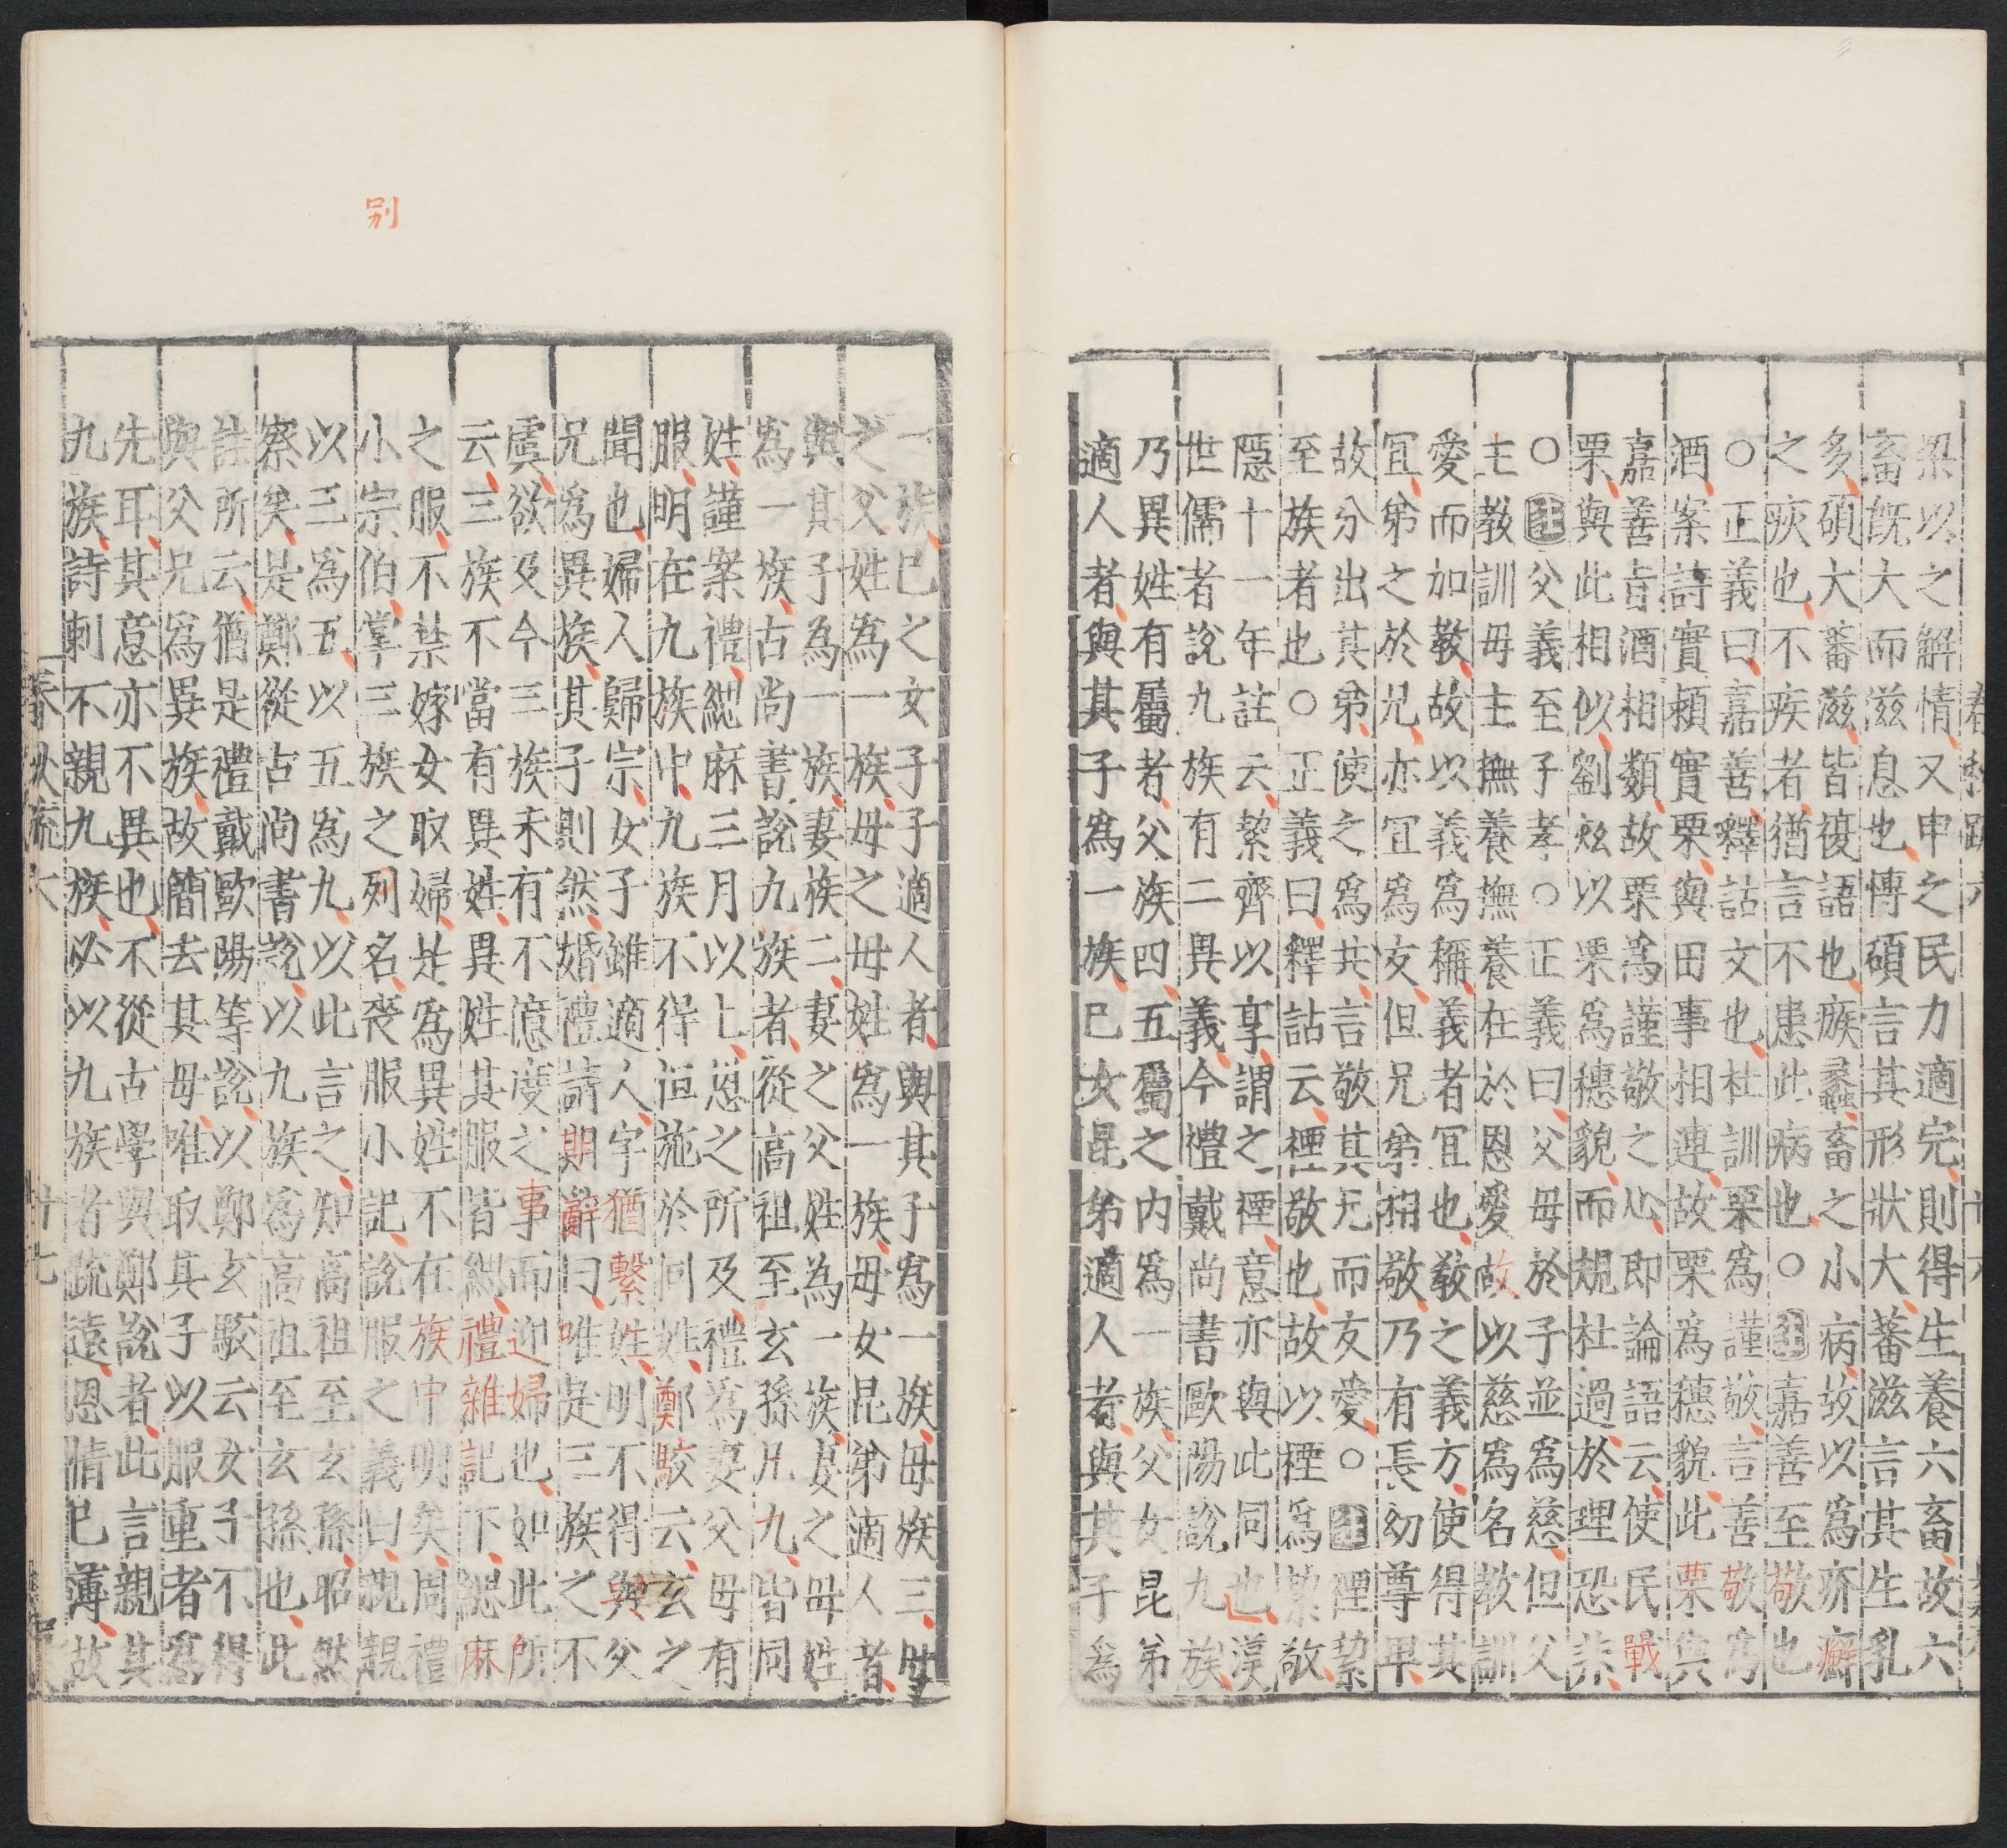 春秋疏六 廿六
梁以之解情又申之民力適完則得生養六畜故六
畜旣大而滋息也博碩言其形狀大蕃滋言其生乳
多碩大蕃滋皆複語也瘯蠡畜之小病故以爲疥癬
之疾也不疾者猶言不患此病也○註嘉善至敬也
○正義曰嘉善釋詁文也杜訓栗爲謹敬言善敬爲
酒案詩實穎實栗與田事相連故栗爲穗貌此栗與
嘉善旨酒相類故栗爲謹敬之心即論語云使民戰
栗與此相似劉炫以栗爲穗貌而規杜過於理恐非
○註父義至子孝○正義曰父母於子並爲慈但父
主教訓毋主撫養撫養在於恩愛故以慈爲名教訓
愛而加敎故以義爲稱義者宜也敎之義方使得其
宜弟之於兄亦宜爲友但兄弟相敬乃有長幼尊卑
故分出其弟使之爲共言敬其兄而友愛○註禋絜
至族者也○正義曰釋詁云禋敬也故以禋爲絜敬
隱十一年註云絜齊以享謂之禋意亦與此同也漢
世儒者說九族有二異義今禮戴尚書歐陽說九族
乃異姓有屬者父族四五屬之內爲一族父女昆弟
適人者與其子爲一族已女昆弟適人者與其子爲
一族已之女子子適人者與其子爲一族母族三母
之父姓爲一族母之母姓爲一族母女昆弟適人者
與其子爲一族妻族二妻之父姓爲一族妻之母姓
爲一族古尚書說九族者從高祖至玄孫凡九皆同
姓謹案禮緦麻三月以上恩之所及禮爲妻父母有
服明在九族中九族不得但施於同姓鄭駮云玄之
聞也婦人歸宗女子雖適人字猶繫姓明不得與父
兄爲異族其子則然婚禮請期辭曰唯是三族之不
虞欲及今三族未有不億度之事而迎婦也如此所
云三族不當有異姓異姓其服皆緦禮雜記下緦麻
之服不禁嫁女取婦是爲異姓不在族中明矣周禮
小宗伯掌三族之列名喪服小記說服之義曰親親
別
以三爲五以五爲九以此言之知高祖至玄孫昭然
察矣是鄭從古尚書說以九族爲高祖至玄孫也此
註所云猶是禮戴歐陽等說以鄭玄駮云女子不得
與父兄爲異族故簡去其母唯取其子以服重者爲
先耳其意亦不異也不從古學與鄭說者此言親其
九族詩刺不親九族必以九族者疏遠恩情已薄故
春秋疏六 廿七